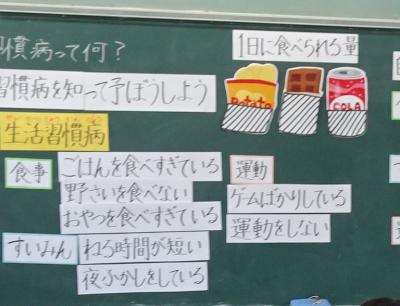 慣病って何?
習慣病を知って予ぼうしよう
生活習慣病
食事
ごはんを食べすぎている
野さいを食べない
おやつを食べすぎている
すいみん
ねる時間が短い
夜ふかしをしている
1日に食べられる量
Potato
COLA
運動
ゲームばかりしている
運動をしない